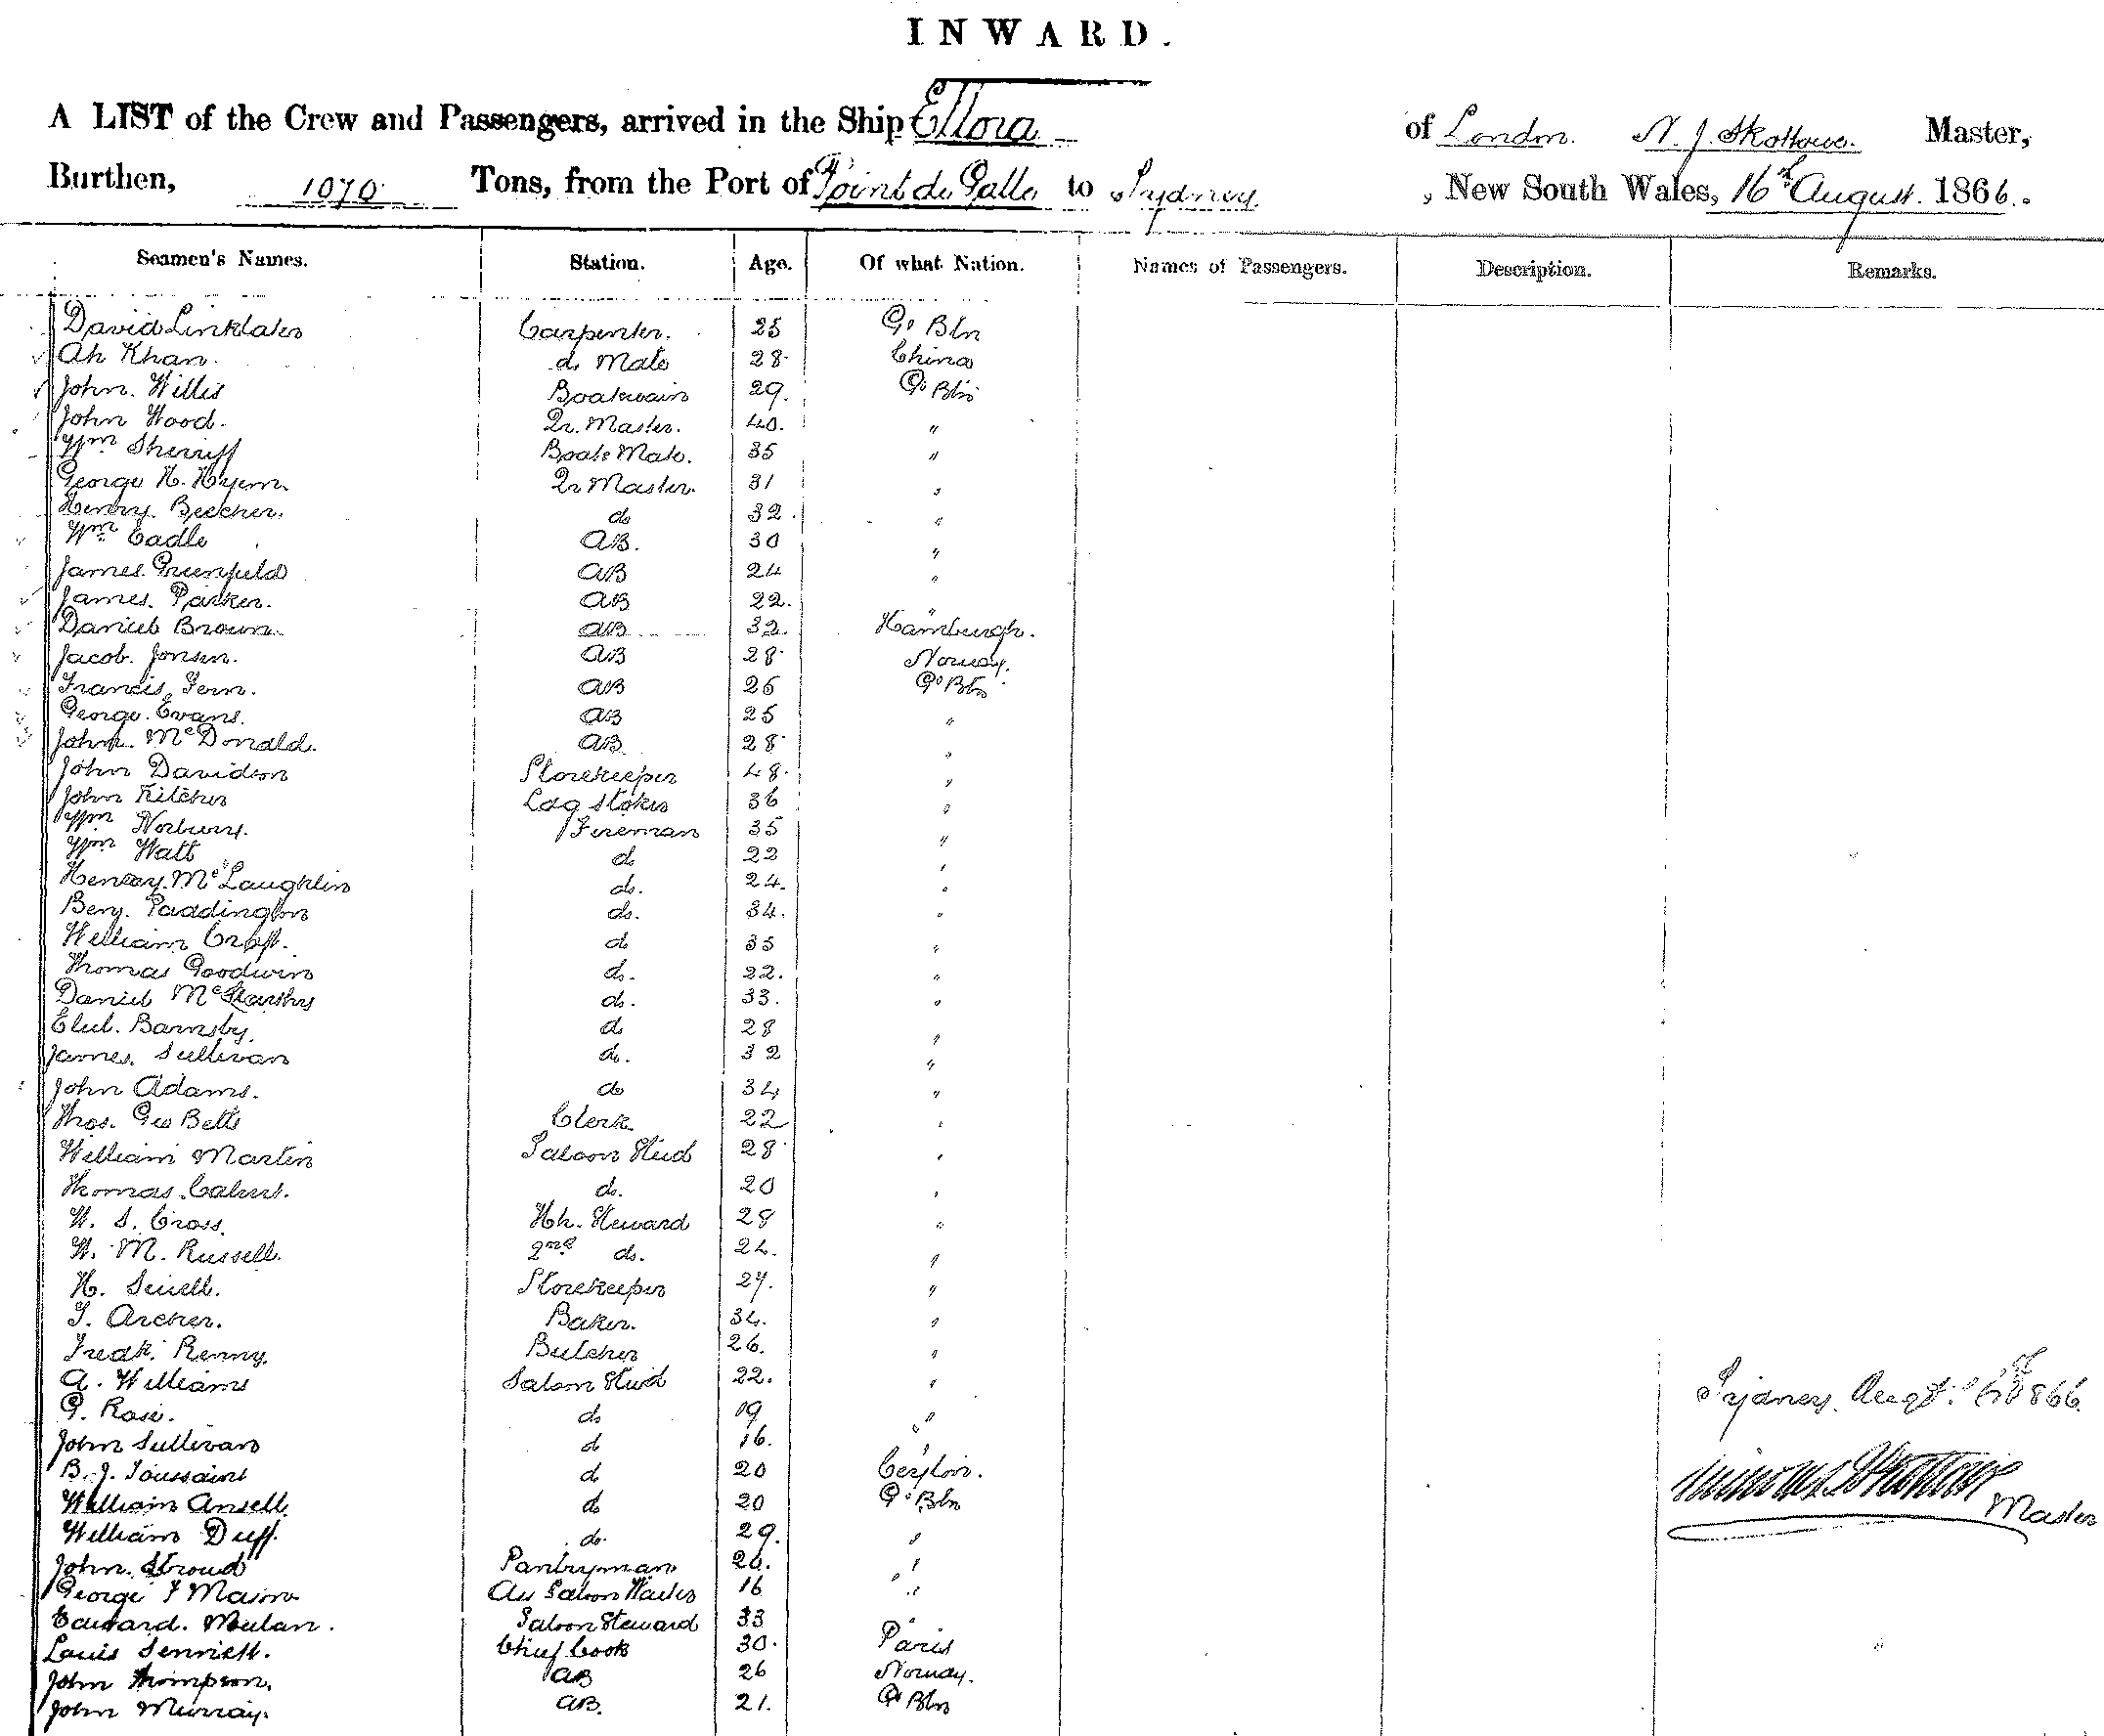 INWARD.
A LIST of the Crew and Passengers, arrived in the Ship Ellora of London. N. J. Skottowe. Master,
Burthen, 1070 Tons, from the Port of Point de Galle to Sydney , New South Wales, 16th August. 1866.
Seamen's Names. Station. Age. Of what Nation. Names of Passengers. Description. Remarks.
David Linklater Carpenter. 25 Gt Btn
Ah Khan. do Mate 28 China
John. Willis Boatswain 29. Gt Btn
John Wood. Qr. Master. 40. "
Wm Sherriff Boats Mate. 35 "
George H. Hyem. Qr Master. 31 "
Henry. Beecher. do 32. "
Wm Eadle AB. 30 "
James. Greenfield AB 24 "
James. Parker. AB 22. "
Daniel Brown. AB 32. Hamburgh.
Jacob. Jonsen. AB 28 Norway.
Francis Fern. AB 25 Gt Btn
George. Evans. AB 25 "
John. McDonald. AB 28 "
John Davidson Storekeeper 48. "
John Kitcher Ldg Stoker 36 "
Wm Norbury. Fireman 35 "
Wm Watt do 22 "
Henry. McLaughlin do. 24. "
Benj. Paddington do. 34. "
William Croft. do 35 "
Thomas Goodwin do. 22. "
Daniel do. 33. "
Barnsby. do 28 "
James. Sullivan do. 32 "
John Adams. do 34 "
Thos. Geo Betts Clerk. 22 "
William Martin Saloon Stwd 28 "
Thomas. do. 20 "
W. S. Cross. Hd. Steward 28 "
W. M. Russell. 2nd do. 24. "
H. Sewell. Storekeeper 27. "
T. Archer. Baker. 34. "
Fredk. Renny. Butcher 26. "
A. Williams Saloon Stwd 22. "
G. Rose. do 19 "
John Sullivan do 16. "
B. J. Toussaint do 20 Ceylon.
William Ansell. do 20 Gt Btn
William Duff. do. 29. "
John. Stroud Pantryman 26. "
George F Mason As Saloon Waiter 16 "
Edward. Meulan. Saloon Steward 33 "
Louis Chief Cook 30. Paris
John Thompson. AB 26 Norway.
John Murray. AB. 21. Gt Btn
Sydney. Augt. 16th 1866.
Master